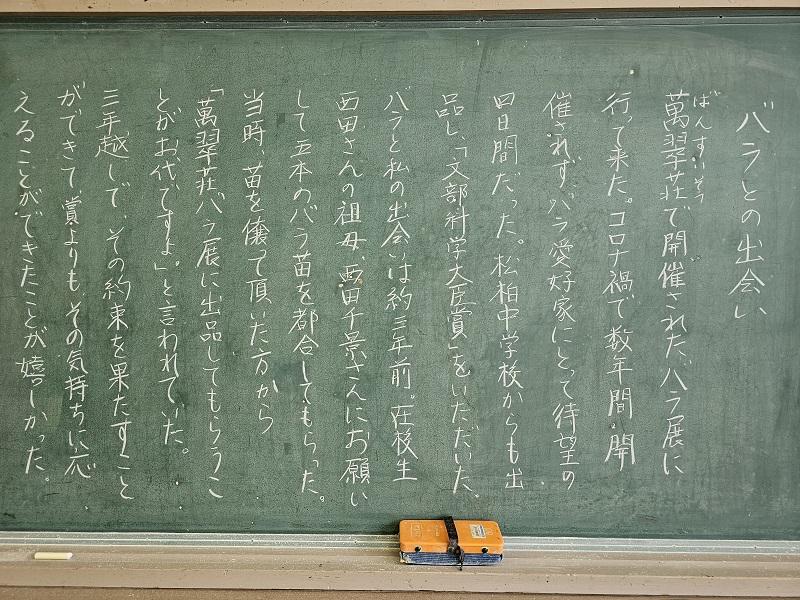 バラとの出会い
ばんすいそう
萬翠荘で開催された、バラ展に
行って来た。コロナ禍で数年間、開
催されず、バラ愛好家にとって待望の
四日間だった。松柏中学校からも出
品し、「文部科学大臣賞」をいただいた。
バラと私の出会いは約三年前。在校生
西田さんの祖母、西田千景さんにお願い
して五本のバラ苗を都合してもらった。
当時、苗を譲って頂いた方から
「萬翠荘バラ展に出品してもらうこ
とがお代ですよ」。と言われていた。
三年越しで、その約束を果たすこと
ができて、賞よりもその気持ちに応
えることができたことが嬉しかった。